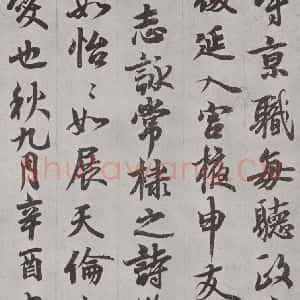 京職每聽政
延入宮掖申友
志詠常棣之詩
如怡〻如展天倫
愛也秋九月辛酉
Shufawang.cn